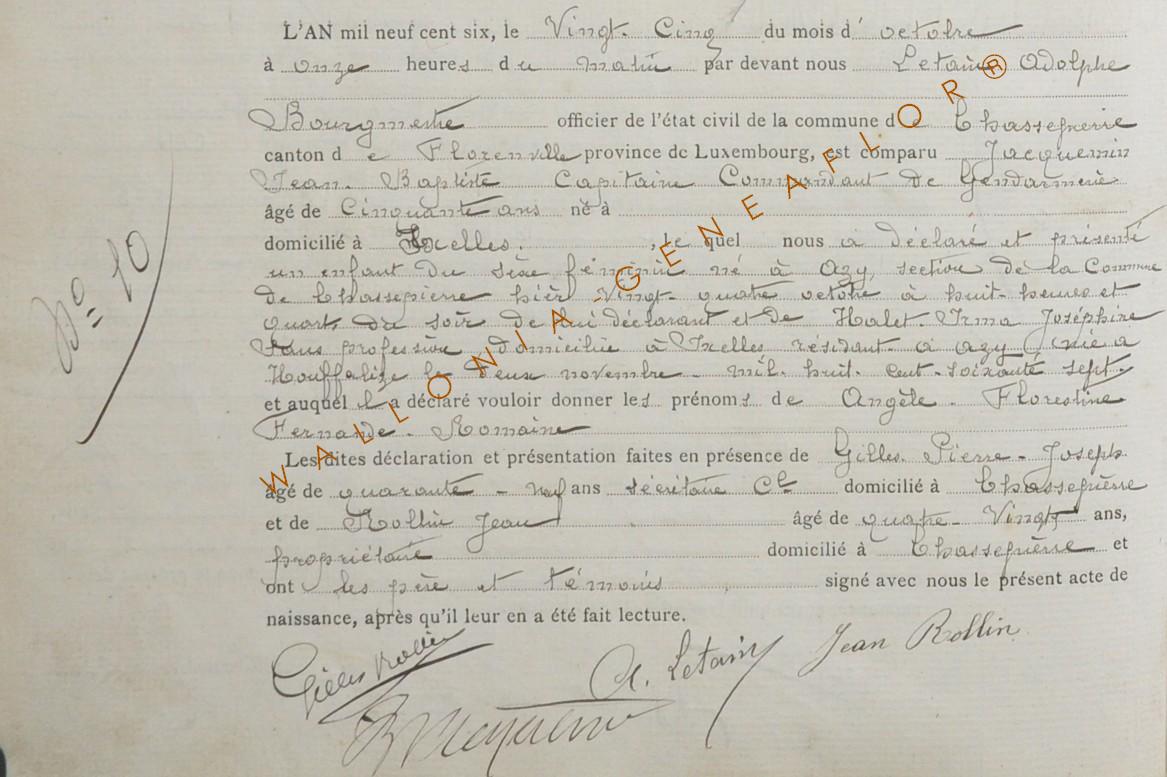 L'AN mil neuf cent six, le Vingt-Cinq du mois d'octobre
à onze heures du matin par devant nous Letaine Adolphe
Bourgmestre officier de l'état civil de la commune de Chassepierre
canton de Florenville province de Luxembourg, est comparu Jacquemin
Jean-Baptiste Capitaine Commandant de Gendarmerie
âgé de Cinquante ans né à
domicilié à Ixelles, le quel nous a déclaré et présenté
un enfant du sexe féminin né à Azy, section de la Commune
de Chassepierre hier Vingt-quatre octobre à huit heures et
quart du soir de lui déclarant et de Halet Irma Joséphine
sans profession domiciliée à Ixelles résidant à Azy (née a
Houffalize le deux novembre mil huit cent soixante sept
et auquel il a déclaré vouloir donner les prénoms de Angèle Florestine
Fernande Romaine
Les dites déclaration et présentation faites en présence de Gilles Pierre-Joseph
âgé de quarante-neuf ans secrétaire Cl domicilié à Chassepierre
et de Rollin Jean âgé de quatre-Vingt ans,
propriétaire domicilié à Chassepierre et
ont les père et témoins signé avec nous le présent acte de
naissance, après qu'il leur en a été fait lecture.
N° 10
Gilles A. Letaine Jean Rollin
WALLONIA-GENEAFLOR®